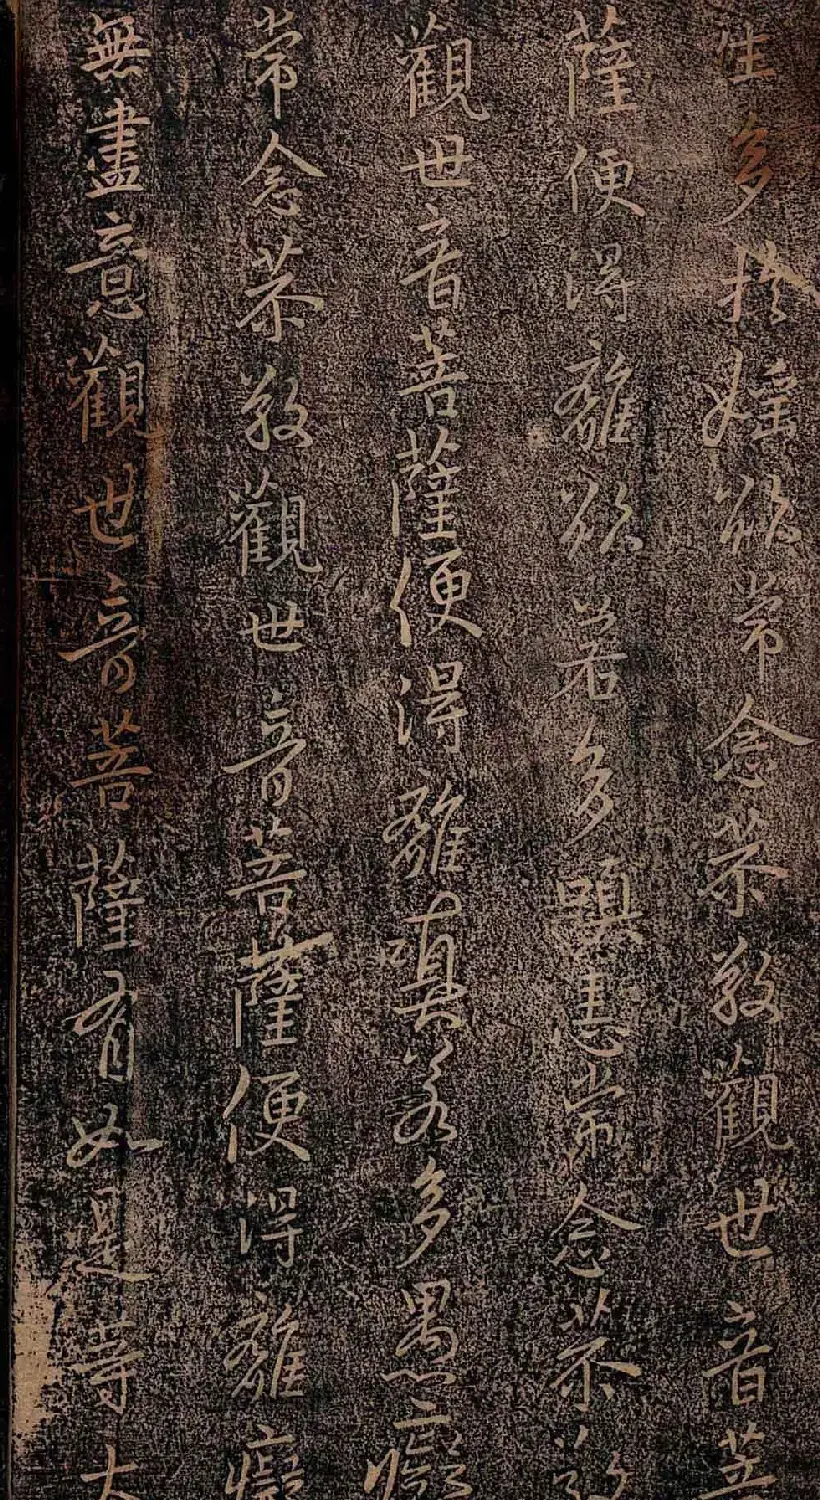 生多於婬欲常念恭敬觀世音菩
薩便得離欲若多瞋恚常念恭敬
觀世音菩薩便得離嗔若多愚癡
常念恭敬觀世音菩薩便得離癡
無盡意觀世音菩薩有如是等大